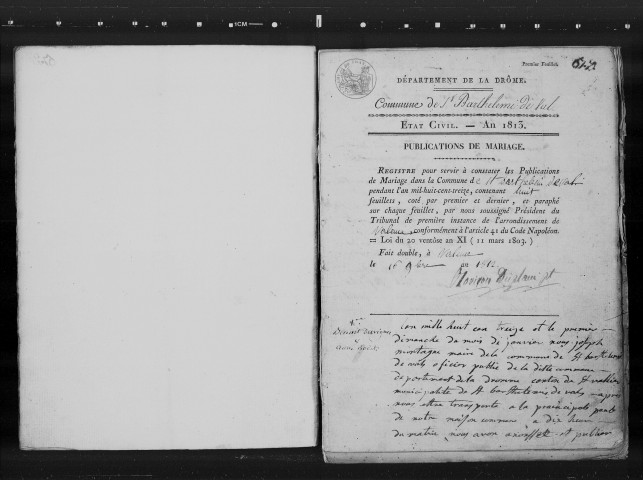 Premier Feuillet.
DÉPARTEMENT DE LA DRÔME.
Commune de St Barthelemi de Val
ÉTAT CIVIL. — AN 1813.
PUBLICATIONS DE MARIAGE.
REGISTRE pour servir à constater les Publications
de Mariage dans la Commune de St Barthelemi de Val
pendant l'an mil-huit-cent-treize, contenant huit
feuillets, coté par premier et dernier, et paraphé
sur chaque feuillet, par nous soussigné Président du
Tribunal de première instance de l'arrondissement de
Valence, conformément à l'article 41 du Code Napoléon.
= Loi du 20 ventôse an XI ( 11 mars 1803. )
Fait double, à Valence
le an 1812
1er
et
l'an mille huit cen treize et le premier
dimanche du mois de janvier nous joseph
montagne maire de la commune de St barthelemi
de vals officier public de la ditte commune
departement de la dromme canton de St vallier
municipalite de St barthelemi de vals
nous etre transporte a la principale porte
de notre maison commune a dix heure
du matin nous avon et publier